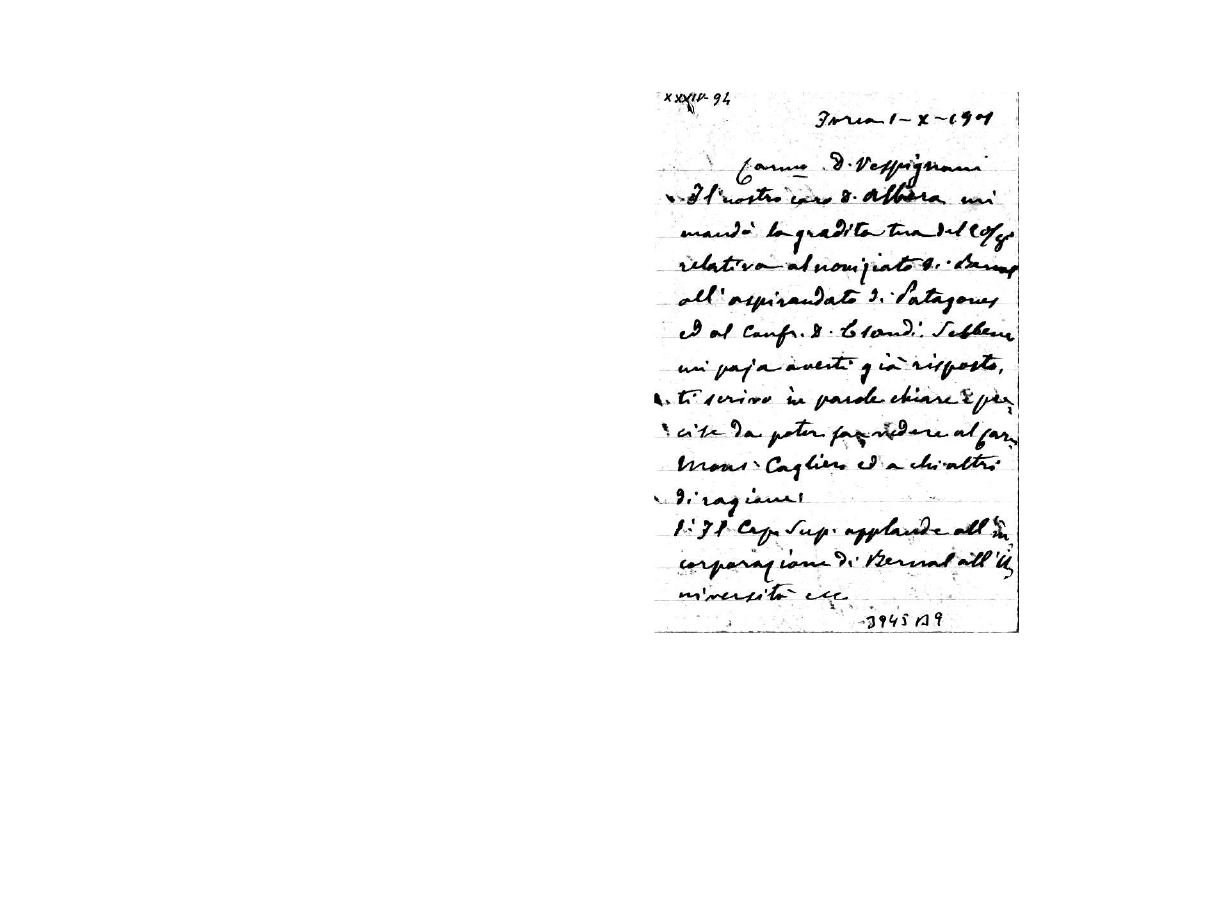 XXXIV-94
Ivrea 1-X-1901
Carmo D. Vespignani
Il nostro caro D. Albera mi
mandò la gradita tua del
relativa al noviziato di Bernal
all'aspirandato di Patagones
ed al Confr. D. Sebbene
mi paja averti già risposto,
ti scrivo in parole chiare e pre
cise da poter far vedere al Car.
Mons. Cagliero ed a chi altri
di ragione:
1. Il Cap. Sup. applaude all'in
corporazione di Bernal all'U
niversità ecc
3945 B9